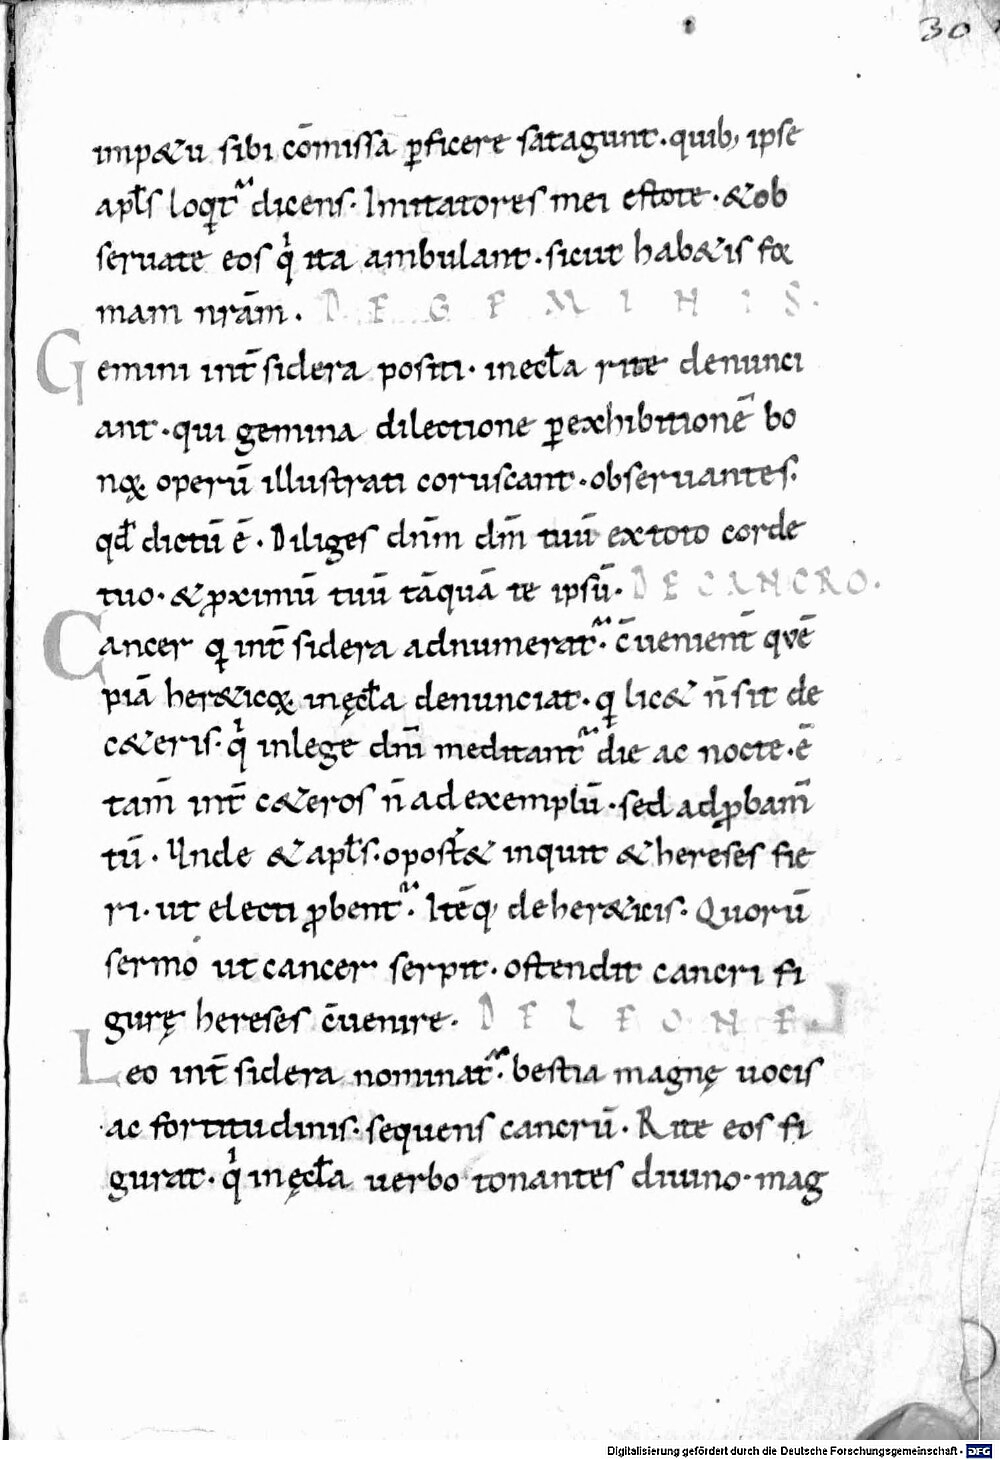 30
imp&u sibi cōmissa ꝑficere satagunt · quib; ipse
apl̄s loqͥt᷑ dicens · Imitatores mei estote · &ob
seruate eos qͥ ita ambulant · sicut hab&is foꝛ
mam nrām · DE GEMINIS ·
Gemini int̄ sidera positi · inecl̄a rite denunci
ant · qui gemina dilectione ꝑ exhibitionē bo
noꝝ operū illustrati coruscant · obseruantes ·
qđ dictū ē · Diliges dn̄m dm̄ tuū ex toto corde
tuo · & ꝓximū tuū tāquā te ipsū · DE CANCRO ·
Cancer qͥ int̄ sidera adnumerat᷑ · c̄uenient̄ qvē
piā her&icoꝝ inęcl̄a denunciat · qͥ lic& n̄ sit de
c&eris · qͥ inlege dn̄i meditant᷑ die ac nocte · ē
tam̄ int̄ c&eros n̄ ad exemplū · sed adꝓbam̄
tū · Unde & apl̄s · oport& inquit & hereses fie
ri · ut electi ꝓbent᷑ · Itēq; de her&icis · Quorū
sermo ut cancer serpit · ostendit cancri fi
gurę hereses c̄uenire · DE LEONE ·
Leo int̄ sidera nominat᷑ · bestia magnę uocis
ac fortitudinis · sequens cancrū · Rite eos fi
gurat · qͥ inęcl̄a uerbo tonantes diuino · mag
Digitalisierung gefördert durch die Deutsche Forschungsgemeinschaft - DFG